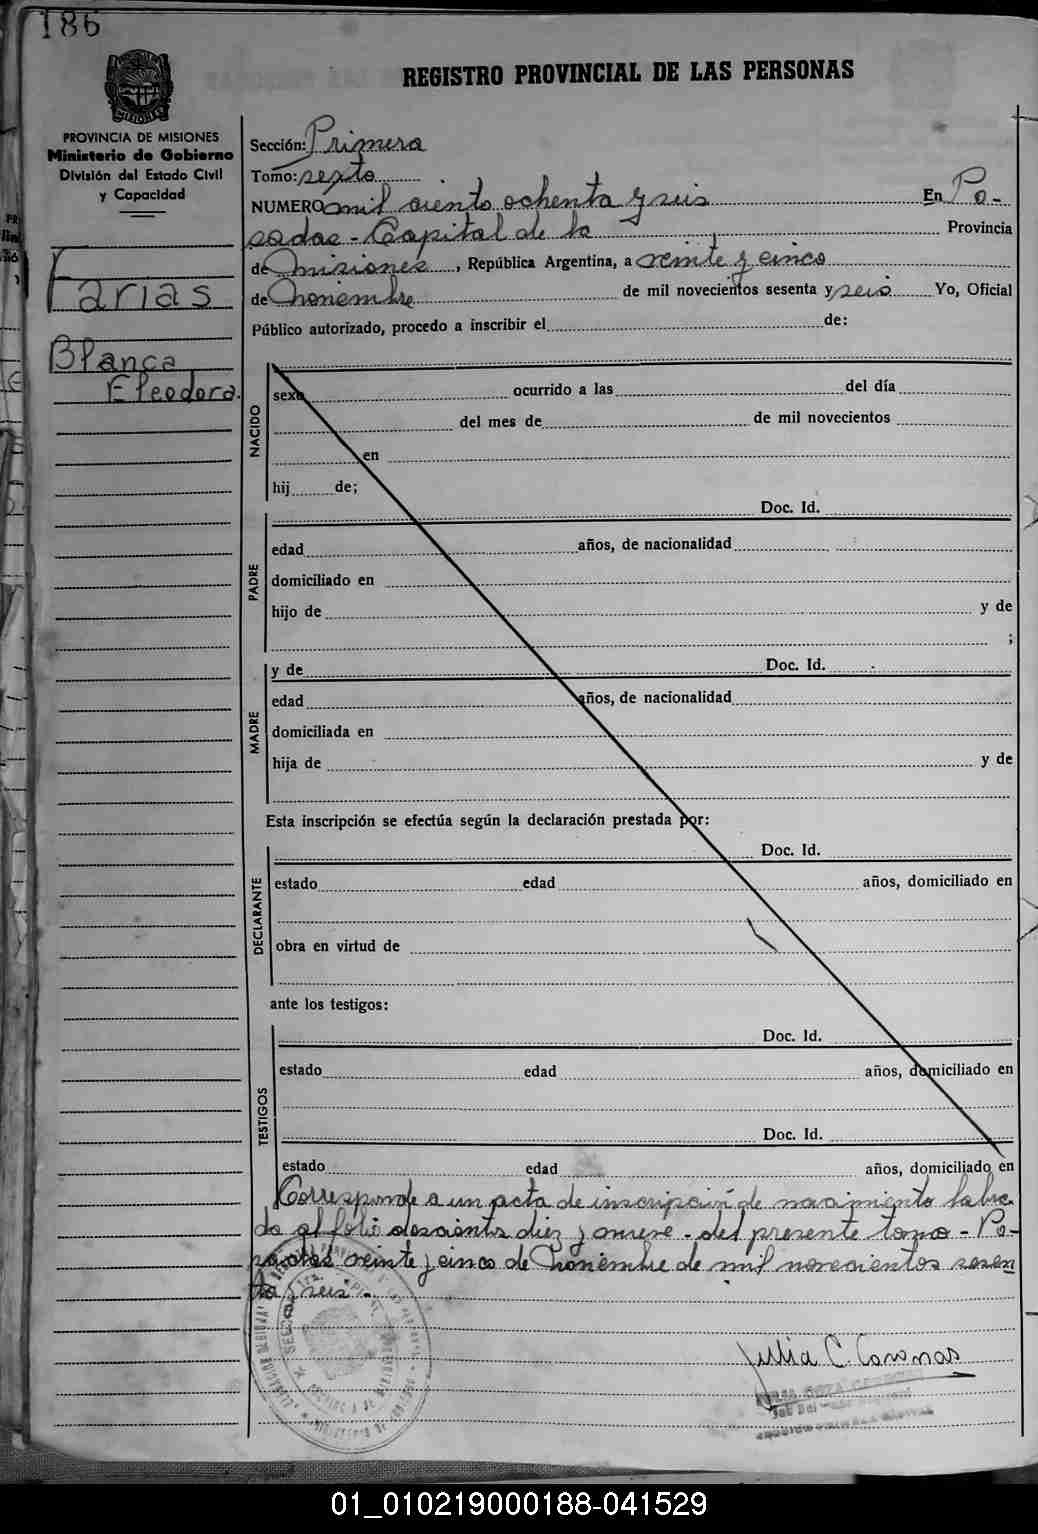 186
REGISTRO PROVINCIAL DE LAS PERSONAS
PROVINCIA DE MISIONES
Ministerio de Gobierno
División del Estado Civil
y Capacidad
Farias
Blanca
Eleodora
Sección: Primera
Tomo: sexto
NUMERO mil ciento ochenta y seis En Po-
sadas - Capital de la Provincia
de misiones, República Argentina, a veinte y cinco
de noviembre de mil novecientos sesenta y seis Yo, Oficial
Público autorizado, procedo a inscribir el de:
NACIDO
sexo ocurrido a las del día
del mes de de mil novecientos
en
hij de;
Doc. Id.
PADRE
edad años, de nacionalidad
domiciliado en
hijo de y de
;
y de Doc. Id.
MADRE
edad años, de nacionalidad
domiciliada en
hija de y de
Esta inscripción se efectúa según la declaración prestada por:
Doc. Id.
DECLARANTE
estado edad años, domiciliado en
obra en virtud de
ante los testigos:
Doc. Id.
TESTIGOS
estado edad años, domiciliado en
Doc. Id.
estado edad años, domiciliado en
Corresponde a un acta de inscripción de nacimiento labra
da al folio doscientos diez y nueve - del presente tomo - Po-
sadas veinte y cinco de noviembre de mil novecientos sesen
ta y seis -
Julia C.
01_010219000188-041529